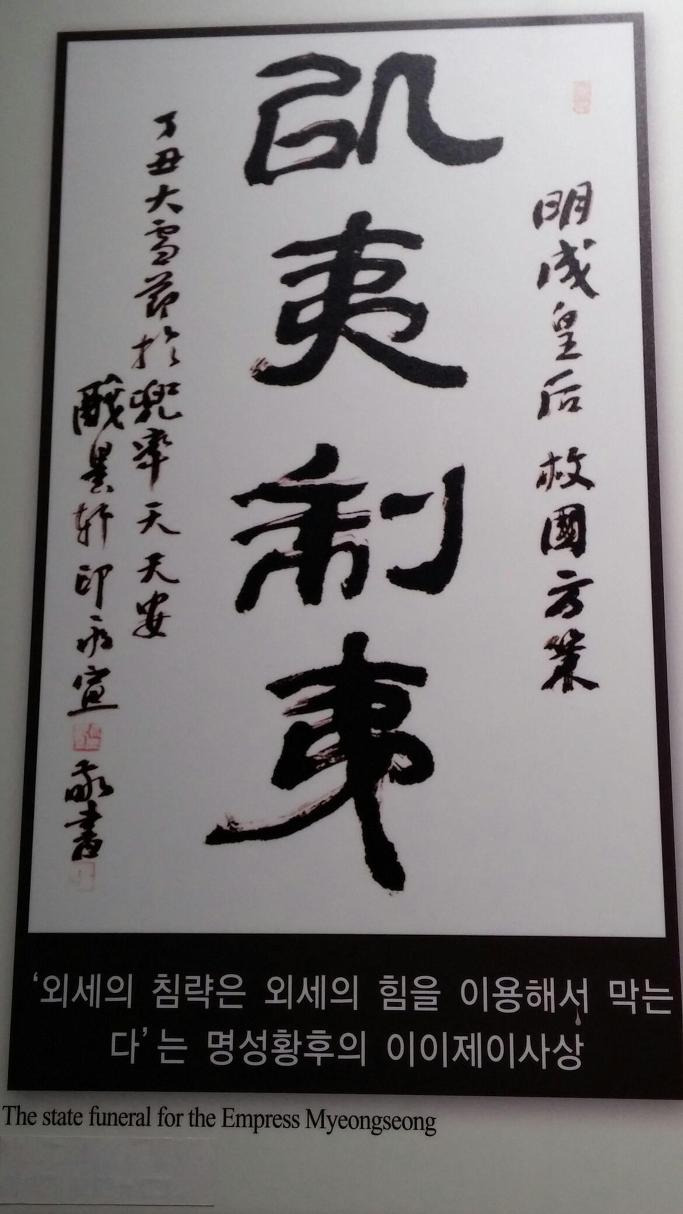 明成皇后 救國方策
以夷制夷
丁丑大雪節於兜率天天安
曇軒 印永宣 敬書
‘외세의 침략은 외세의 힘을 이용해서 막는
다’는 명성황후의 이이제이사상
The state funeral for the Empress Myeongseong